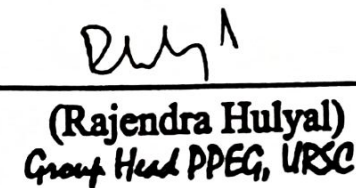 (Rajendra Hulyal)
Group Head PPEG, URSC